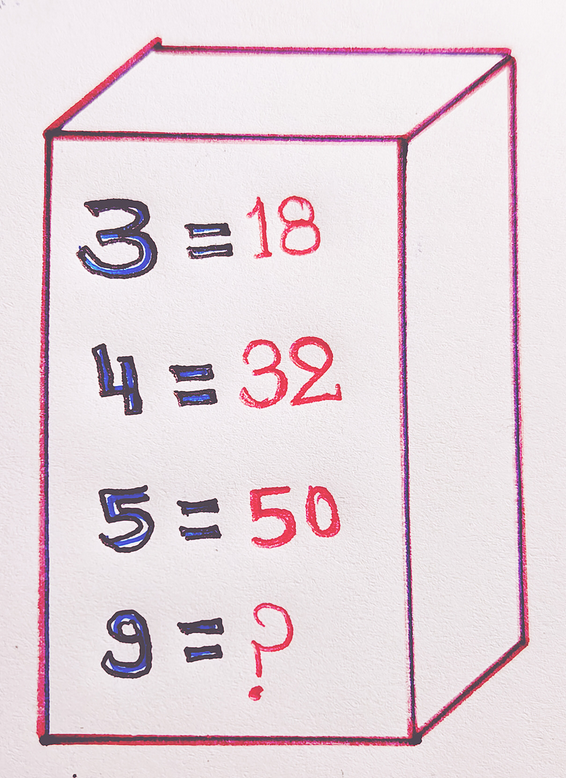 3 = 18
4 = 32
5 = 50
9 = ?